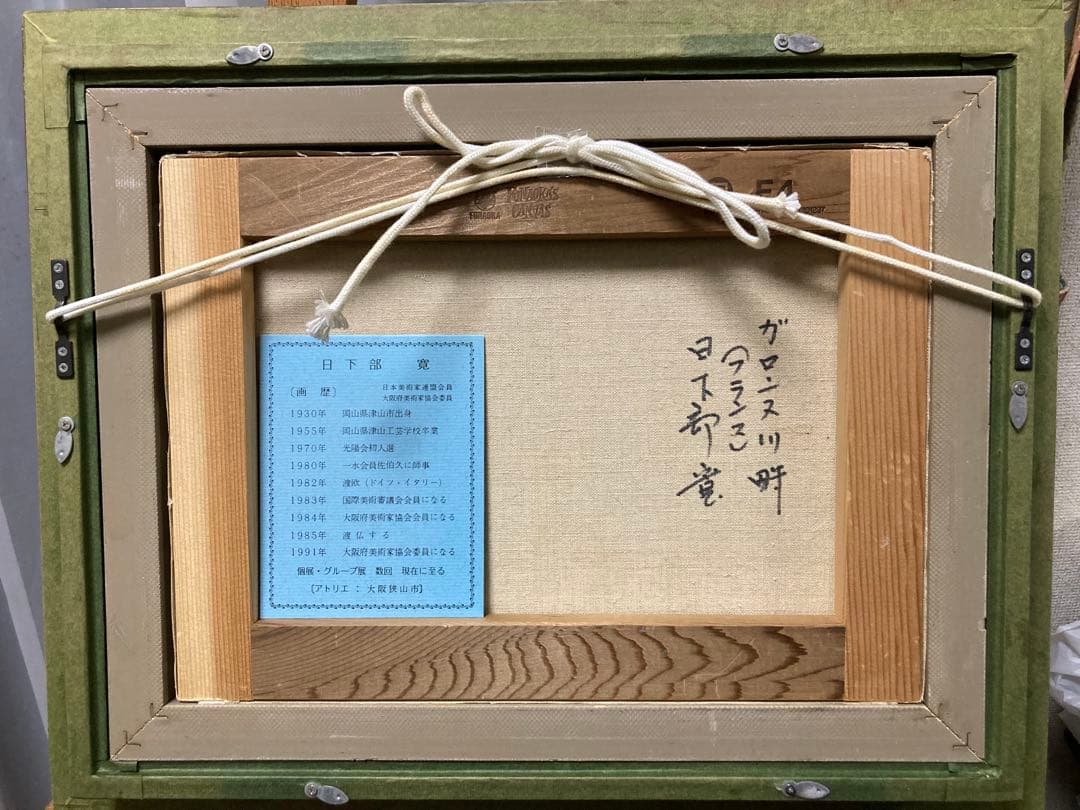 FUNAOKA
FUNAOKA'S
CANVAS
F4
日下部 寛
〔画 歴〕
日本美術家連盟会員
大阪府美術家協会委員
1930年 岡山県津山市出身
1955年 岡山県津山工芸学校卒業
1970年 光陽会初入選
1980年 一水会員佐伯久に師事
1982年 渡欧（ドイツ・イタリー）
1983年 国際美術審議会会員になる
1984年 大阪府美術家協会会員になる
1985年 渡仏する
1991年 大阪府美術家協会委員になる
個展・グループ展 数回 現在に至る
〔アトリエ：大阪狭山市〕
ガロンヌ川畔
(フランス)
日下部